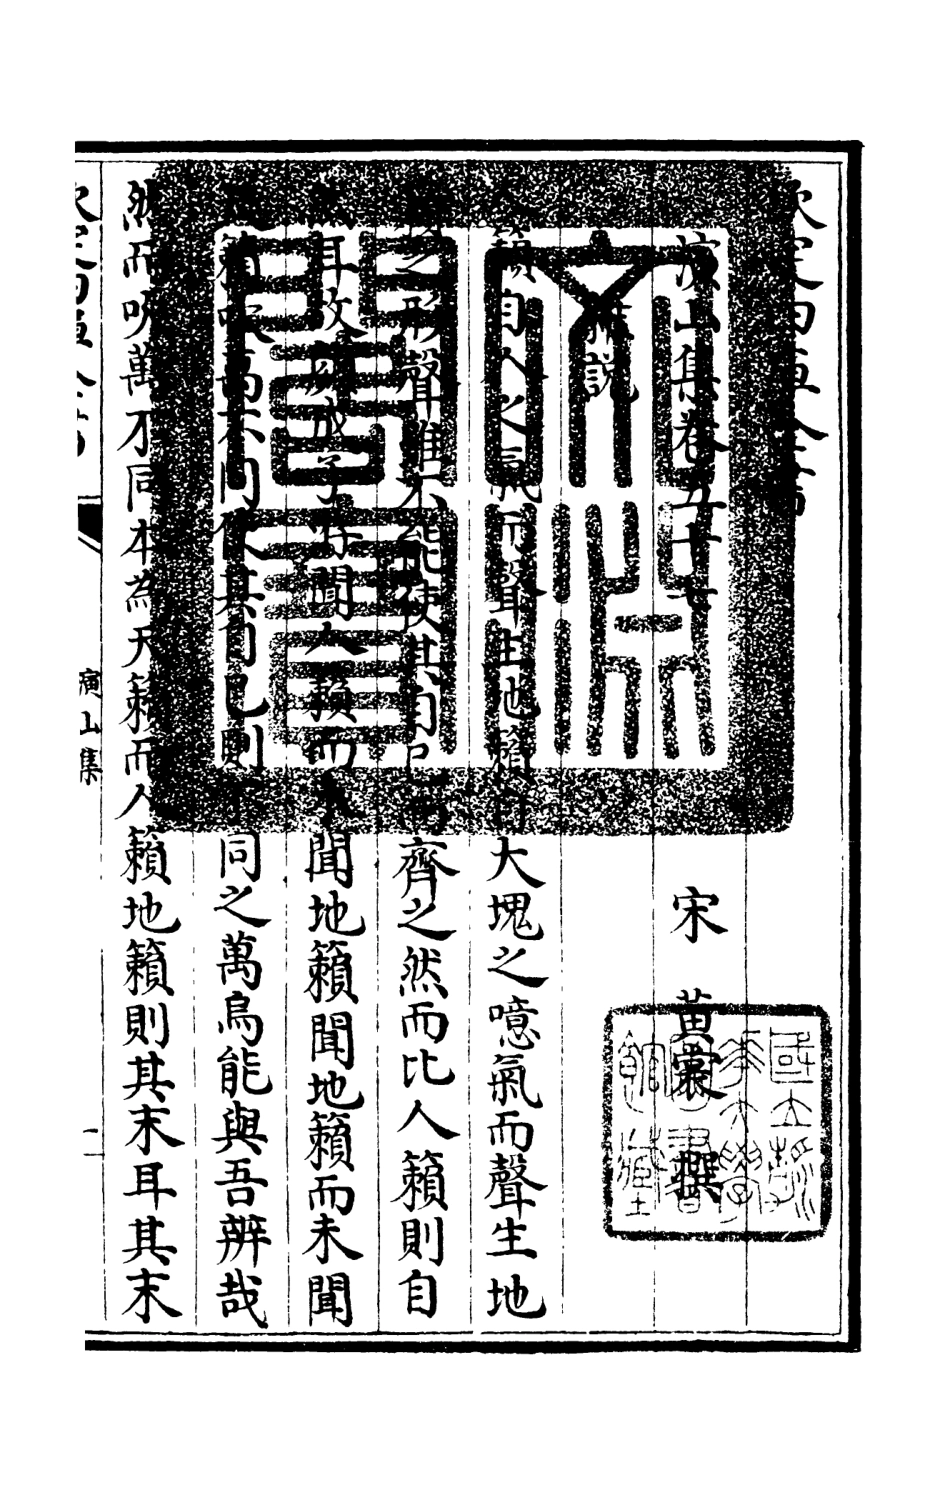 欽定四庫全書
演山集卷五十七
宋 黃裳 撰
雜說
人籟自人之氣而聲生地籟自大塊之噫氣而聲生地
籟之形聲雖不能使其自已而齊之然而比人籟則自
然耳故顏成子游聞人籟而未聞地籟聞地籟而未聞
天籟吹萬不同使其自已則不同之萬烏能與吾辨哉
然而吹萬不同本為天籟而人籟地籟則其末耳其末
欽定四庫全書
演山集
一
文淵閣寶